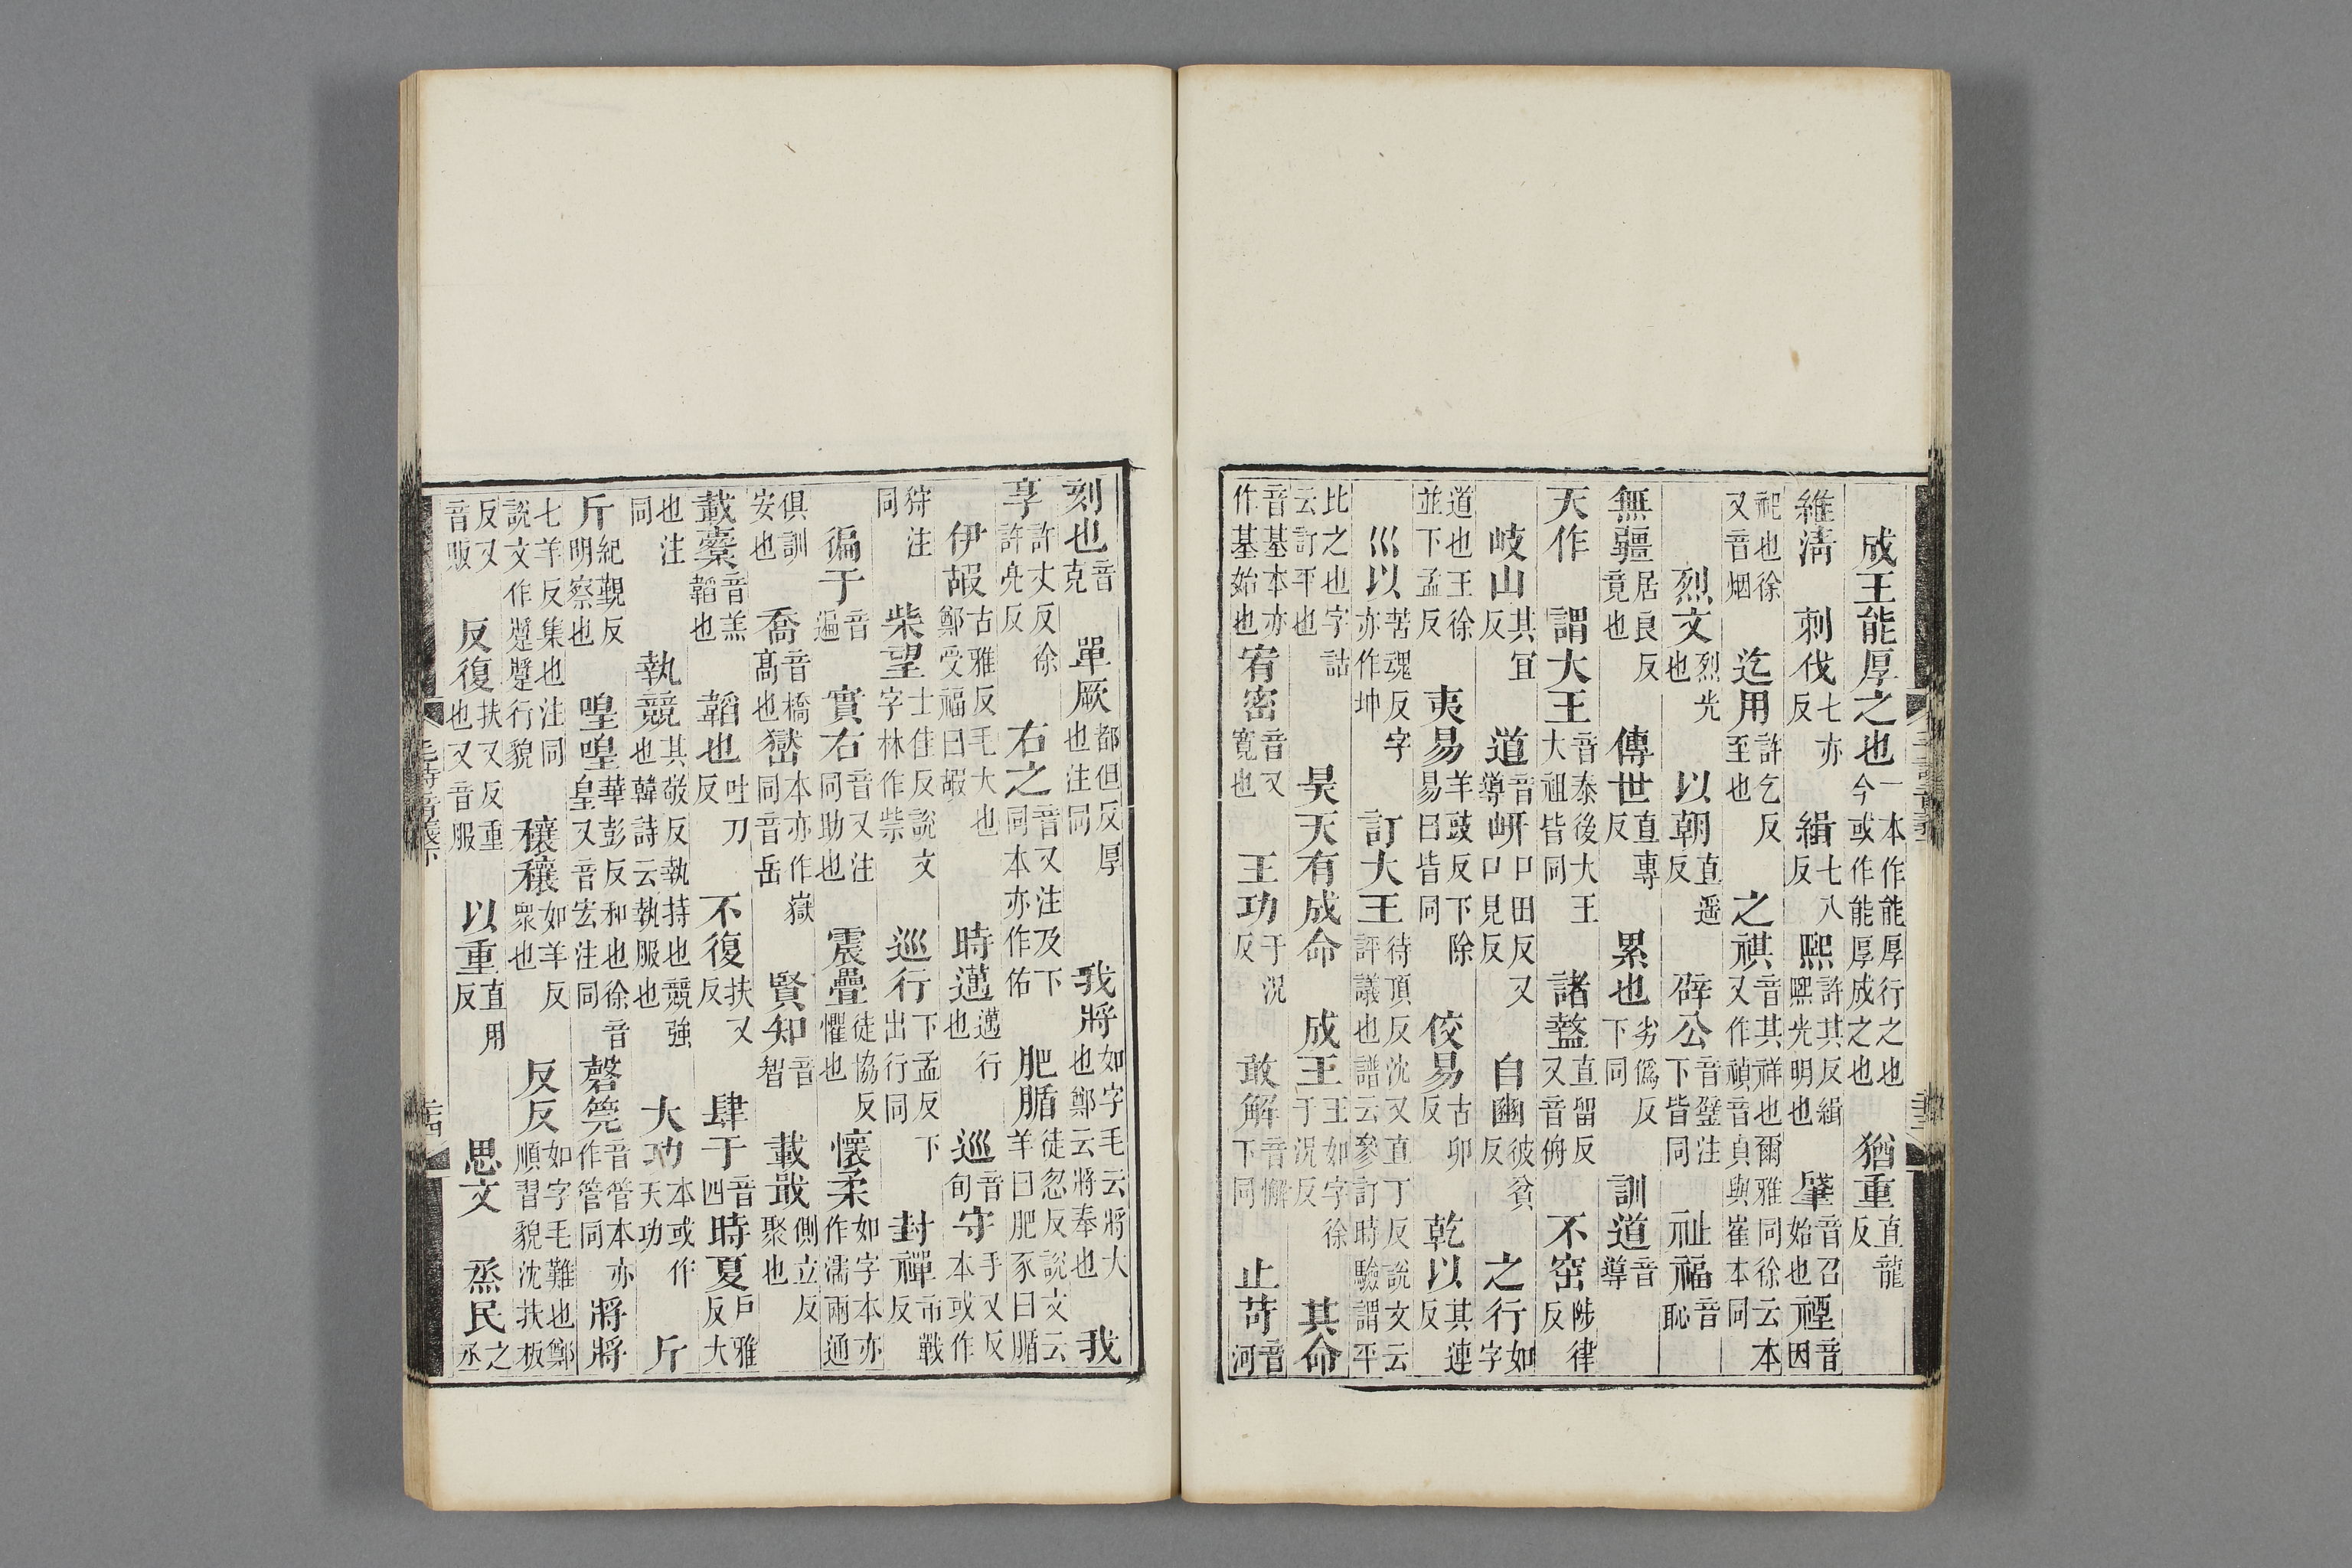 成王能厚之也一本作能厚行之也今或作能厚成之也 猶重直龍反
維淸 刺伐七亦反 緝七八反 熙許其反緝熙光明也 肇音召始也 禋音因
祀也徐又音烟 迄用許乞反至也 之祺音其祥也爾雅同徐云本又作禎音貞與崔本同
烈文烈光也 以朝直遥反 辟公音璧注下皆同 祉福音恥
無疆居良反竟也 傳世直專反 累也劣僞反下同 訓道音導
天作 謂大王音泰後大王大祖皆同 諸盩直留反又音俯 不窋陟律反
岐山其宜反 道音導 岍口田反又口見反 自豳彼貧反 之行如字
道也王徐並下孟反 夷易羊豉反下除易曰皆同 佼易古卯反 乾以其連反
巛以苦魂反字亦作坤 訂大王待頂反沈又直丁反說文云評議也譜云參訂時驗謂平
比之也字詁云訂平也 昊天有成命 成王王如字徐于況反 其命
音基本亦作基始也 宥密音又寬也 王功于況反 敢解音懈下同 止苛音河
刻也音克 單厥都但反厚也注同 我將如字毛云將大也鄭云將奉也 我
享許丈反徐許亮反 右之音又注及下同本亦作佑 肥腯徒忽反說文云羊曰肥豕曰腯
伊嘏古雅反毛大也鄭受福曰嘏 時邁邁行也 巡音旬 守手又反本或作
狩注同 柴望士佳反說文字林作祡 巡行下孟反下出行同 封禪市戰反
徧于音遍 實右音又注同助也 震疊徒協反懼也 懷柔如字本亦作濡兩通
俱訓安也 喬音橋高也 嶽本亦作嶽同音岳 賢知音智 載戢側立反聚也
載櫜音羔韜也 韜也吐刀反 不復扶又反 肆于音四 時夏戶雅反大
也注同 執競其敬反執持也競強也韓詩云執服也 大功本或作天功 斤
斤紀覲反明察也 喤喤華彭反和也徐音皇又音宏注同 磬筦音管本亦作管同 將將
七羊反集也注同說文作蹩蹩行貌 穰穰如羊反衆也 反反如字毛難也鄭順習貌沈扶板
反又音販 反復扶又反重也又音服 以重直用反 思文 烝民之丞
毛詩音義下